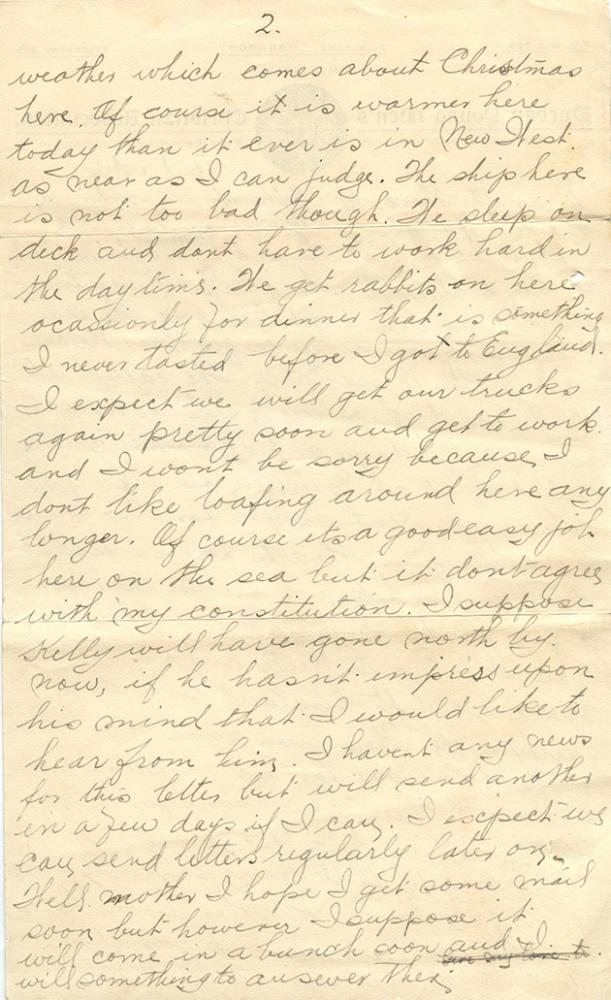 2.
weather which comes about Christmas
here. Of course it is warmer here
today than it ever is in New West.
as near as I can judge. The ship here
is not too bad though. We sleep on
deck and dont have to work hard in
the day time. We get rabbits on here
ocassionly for dinner that is something
I never tasted before I got to England.
I expect we will get our trucks
again pretty soon and get to work.
and I wont be sorry because I
dont like loafing around here any
longer. Of course its a good easy job
here on the sea but it dont agree
with my constitution. I suppose
Kelly will have gone north by
now, if he hasnt impress upon
his mind that I would like to
hear from him. I havent any news
for this letter but will send another
in a few days if I can. I expect we
can send letters regularly later on.
Well mother I hope I get some mail
soon but however I suppose it
will come in a bunch soon and I
will something to answer then.